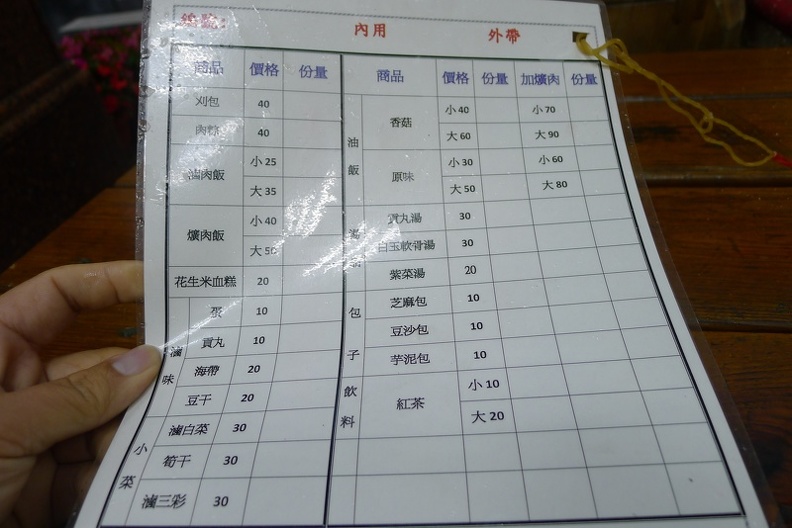 編號:
內用 外帶
商品 價格 份量 商品 價格 份量 加爌肉 份量
刈包 40
肉粽 40
滷肉飯 小 25
大 35
爌肉飯 小 40
大 50
花生米血糕 20
滷味
蛋 10
貢丸 10
海帶 20
豆干 20
小菜
滷白菜 30
筍干 30
滷三彩 30
油飯
香菇 小 40 小 70
大 60 大 90
原味 小 30 小 60
大 50 大 80
湯
貢丸湯 30
白玉軟骨湯 30
紫菜湯 20
包子
芝麻包 10
豆沙包 10
芋泥包 10
飲料
紅茶 小 10
大 20